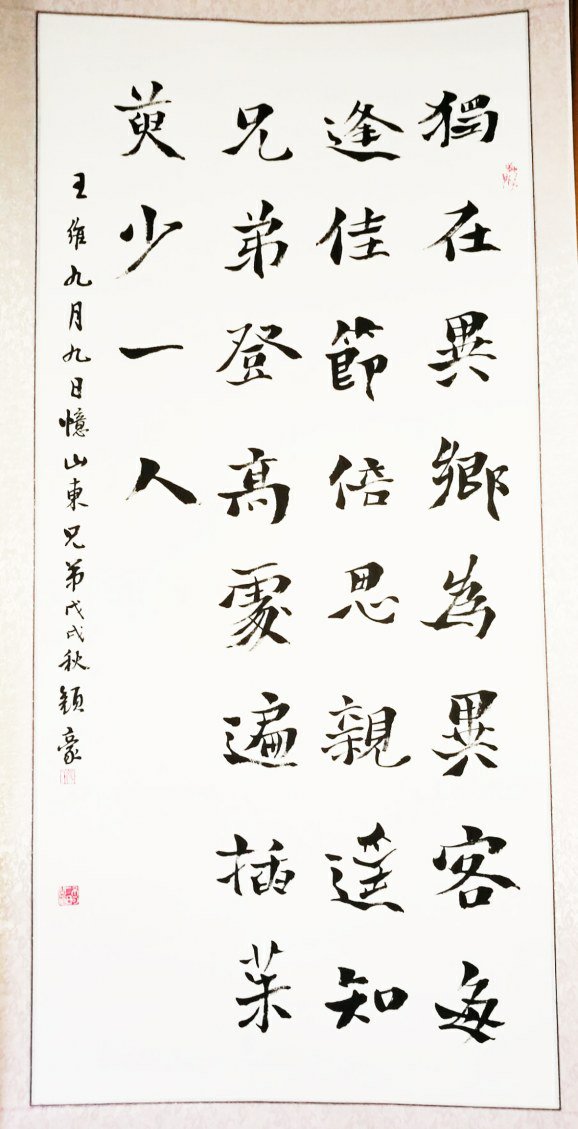 獨在異鄉為異客每
逢佳節倍思親遥知
兄弟登高處遍插茱
萸少一人
王維九月九日憶山東兄弟戊戌秋豪